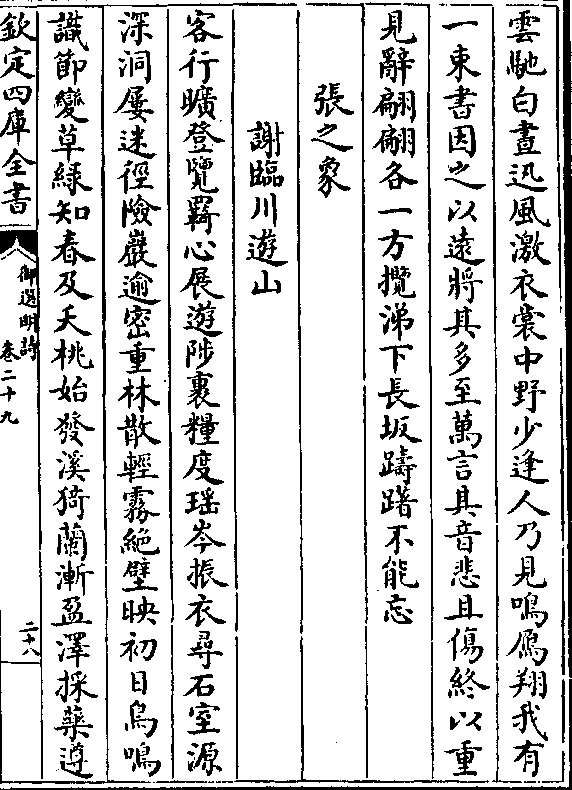 雲馳白晝迅風激衣裳中野少逢人乃見鳴鴈翔我有
一束書因之以遠將其多至萬言其音悲且傷終以重
見辭翩翩各一方攬涕下長坂躊躇不能忘
張之象
謝臨川遊山
客行曠登覽羇心展遊陟裹糧度瑤岑振衣尋石室源
深洞屢迷徑險巖逾密重林散輕霧絕壁映初日鳥鳴
識節變草綠知春及夭桃始發溪猗蘭漸盈澤採藥遵
欽定四庫全書
御選明詩
卷二十九
二十八